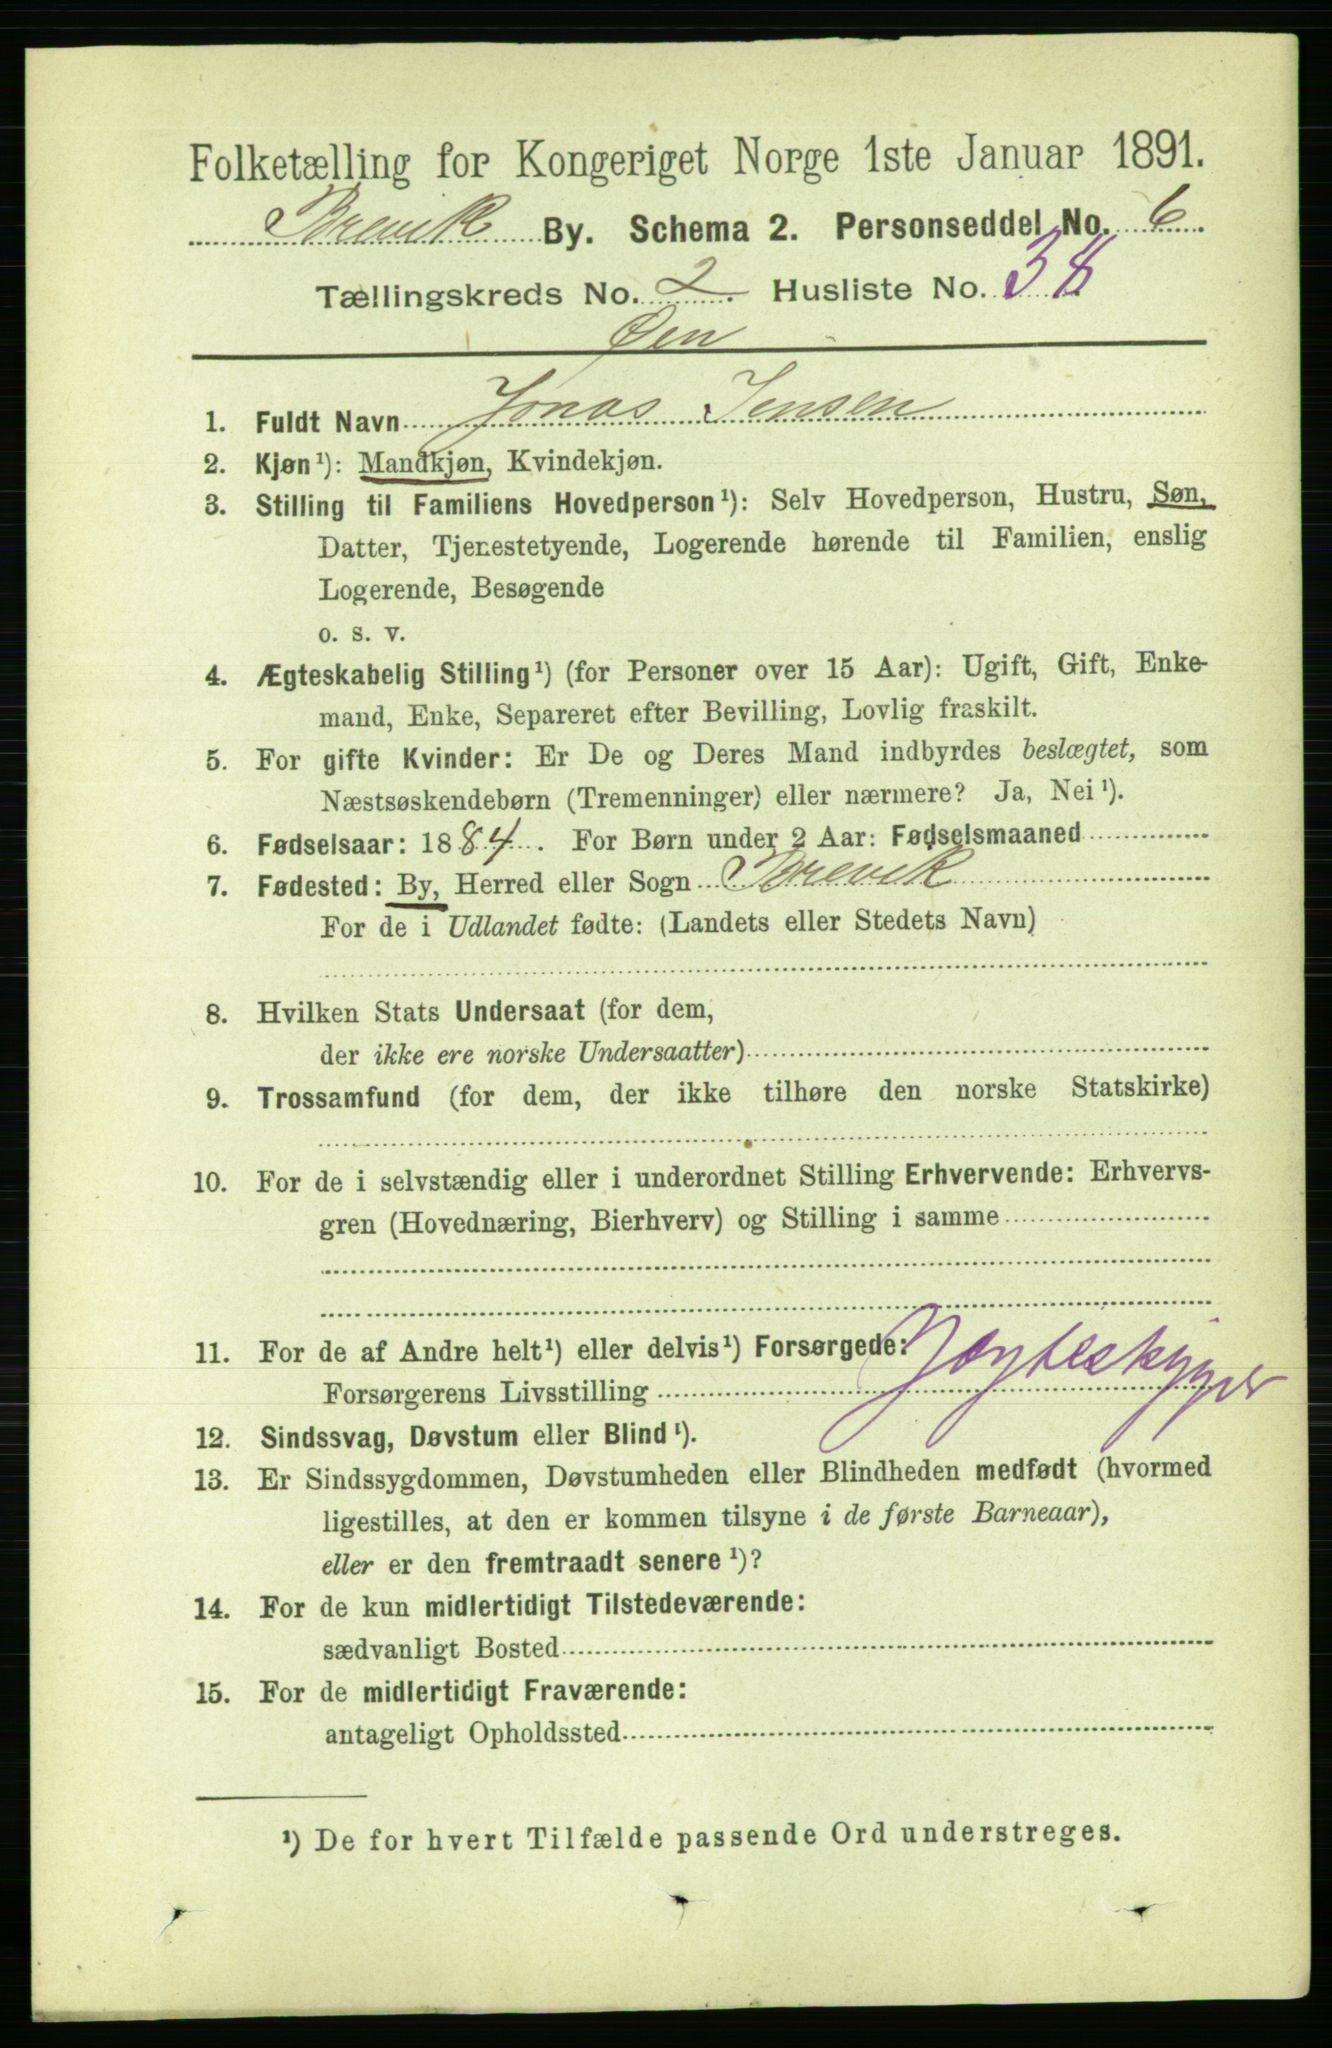 Folketælling for Kongeriget Norge 1ste Januar 1891.
Brevik By. Schema 2. Personseddel No. 6.
Tællingskreds No. 2. Husliste No. 38
Øen
1. Fuldt Navn Jonas Jensen
2. Kjøn¹): Mandkjøn, Kvindekjøn.
3. Stilling til Familiens Hovedperson¹): Selv Hovedperson, Hustru, Søn,
Datter, Tjenestetyende, Logerende hørende til Familien, enslig
Logerende, Besøgende
o. s. v.
4. Ægteskabelig Stilling¹) (for Personer over 15 Aar): Ugift, Gift, Enke-
mand, Enke, Separeret efter Bevilling, Lovlig fraskilt.
5. For gifte Kvinder: Er De og Deres Mand indbyrdes beslægtet, som
Næstsøskendebørn (Tremenninger) eller nærmere? Ja, Nei¹).
6. Fødselsaar: 1884. For Børn under 2 Aar: Fødselsmaaned
7. Fødested: By, Herred eller Sogn Brevik
For de i Udlandet fødte: (Landets eller Stedets Navn)
8. Hvilken Stats Undersaat (for dem,
der ikke ere norske Undersaatter)
9. Trossamfund (for dem, der ikke tilhøre den norske Statskirke)
10. For de i selvstændig eller i underordnet Stilling Erhvervende: Erhvervs-
gren (Hovednæring, Bierhverv) og Stilling i samme
11. For de af Andre helt¹) eller delvis¹) Forsørgede:
Forsørgerens Livsstilling
12. Sindssvag, Døvstum eller Blind¹).
13. Er Sindssygdommen, Døvstumheden eller Blindheden medfødt (hvormed
ligestilles, at den er kommen tilsyne i de første Barneaar),
eller er den fremtraadt senere¹)?
14. For de kun midlertidigt Tilstedeværende:
sædvanligt Bosted
15. For de midlertidigt Fraværende:
antageligt Opholdssted
¹) De for hvert Tilfælde passende Ord understreges.